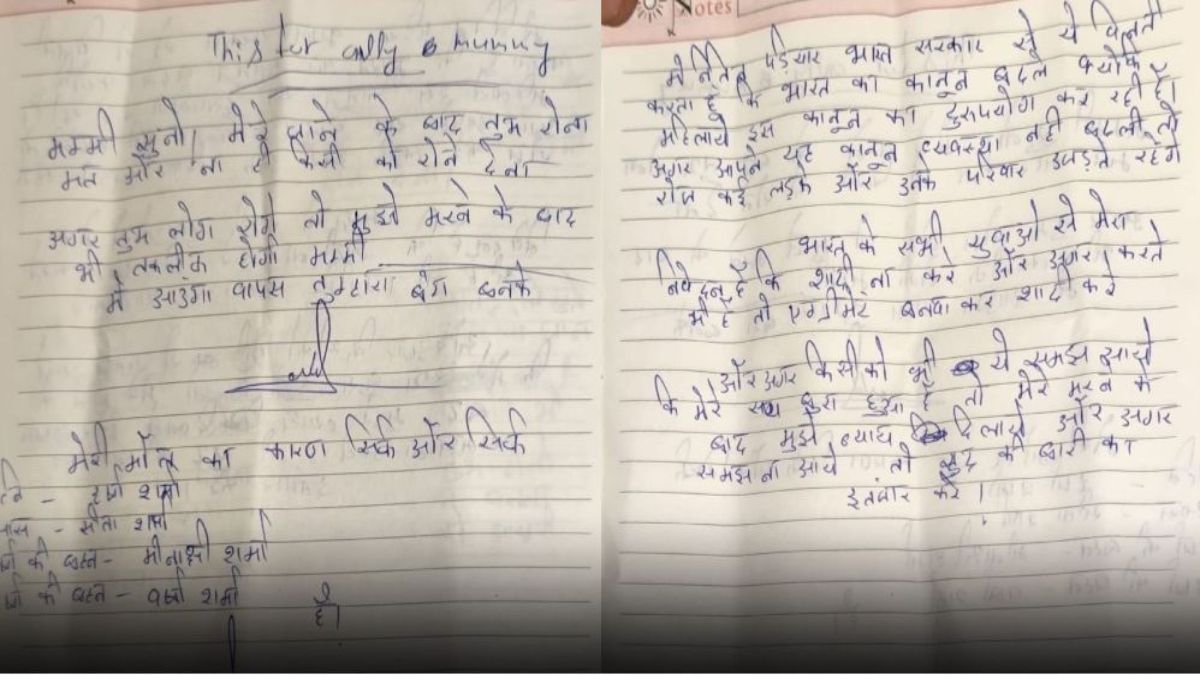 This for only mummy
मम्मी सुनो, मेरे जाने के बाद तुम रोना
मत और ना ही किसी को रोने देना
अगर तुम लोग रोये तो मुझे मरने के बाद
भी तकलीफ होगी मम्मी
मैं आउंगा वापस तुम्हारा बेटा बनके
मेरी मौत का कारण सिर्फ और सिर्फ
हर्षा शर्मा
सास - सीता शर्मा
की बहन - मीनाक्षी शर्मा
की बहन - वर्षा शर्मा
है।
Notes
मैं नितिन पड़ियार भारत सरकार से ये विनती
करता हूँ कि भारत का कानून बदले क्योंकि
महिलाये इस कानून का दुरुपयोग कर रही हैं।
अगर आपने यह कानून व्यवस्था नही बदली तो
रोज कई लड़के और उनके परिवार उजड़ते रहेंगे
भारत के सभी युवाओ से मेरा
निवेदन है कि शादी ना करे और अगर करते
भी है तो एग्रीमेंट बनवा कर शादी करे
और अगर किसी को भी ये समझ आये
कि मेरे साथ बुरा हुआ है तो मेरे मरने के
बाद मुझे न्याय दिलाये और अगर
समझ ना आये तो खुद की बारी का
इंतजार करे।